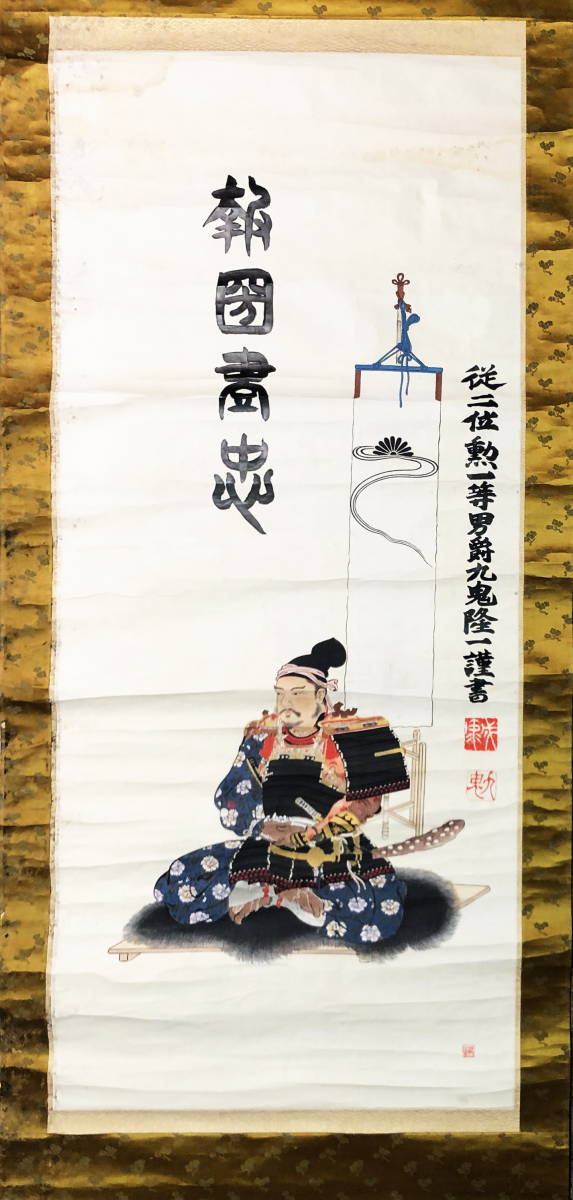 従二位勲一等男爵九鬼隆一謹書
報國盡忠